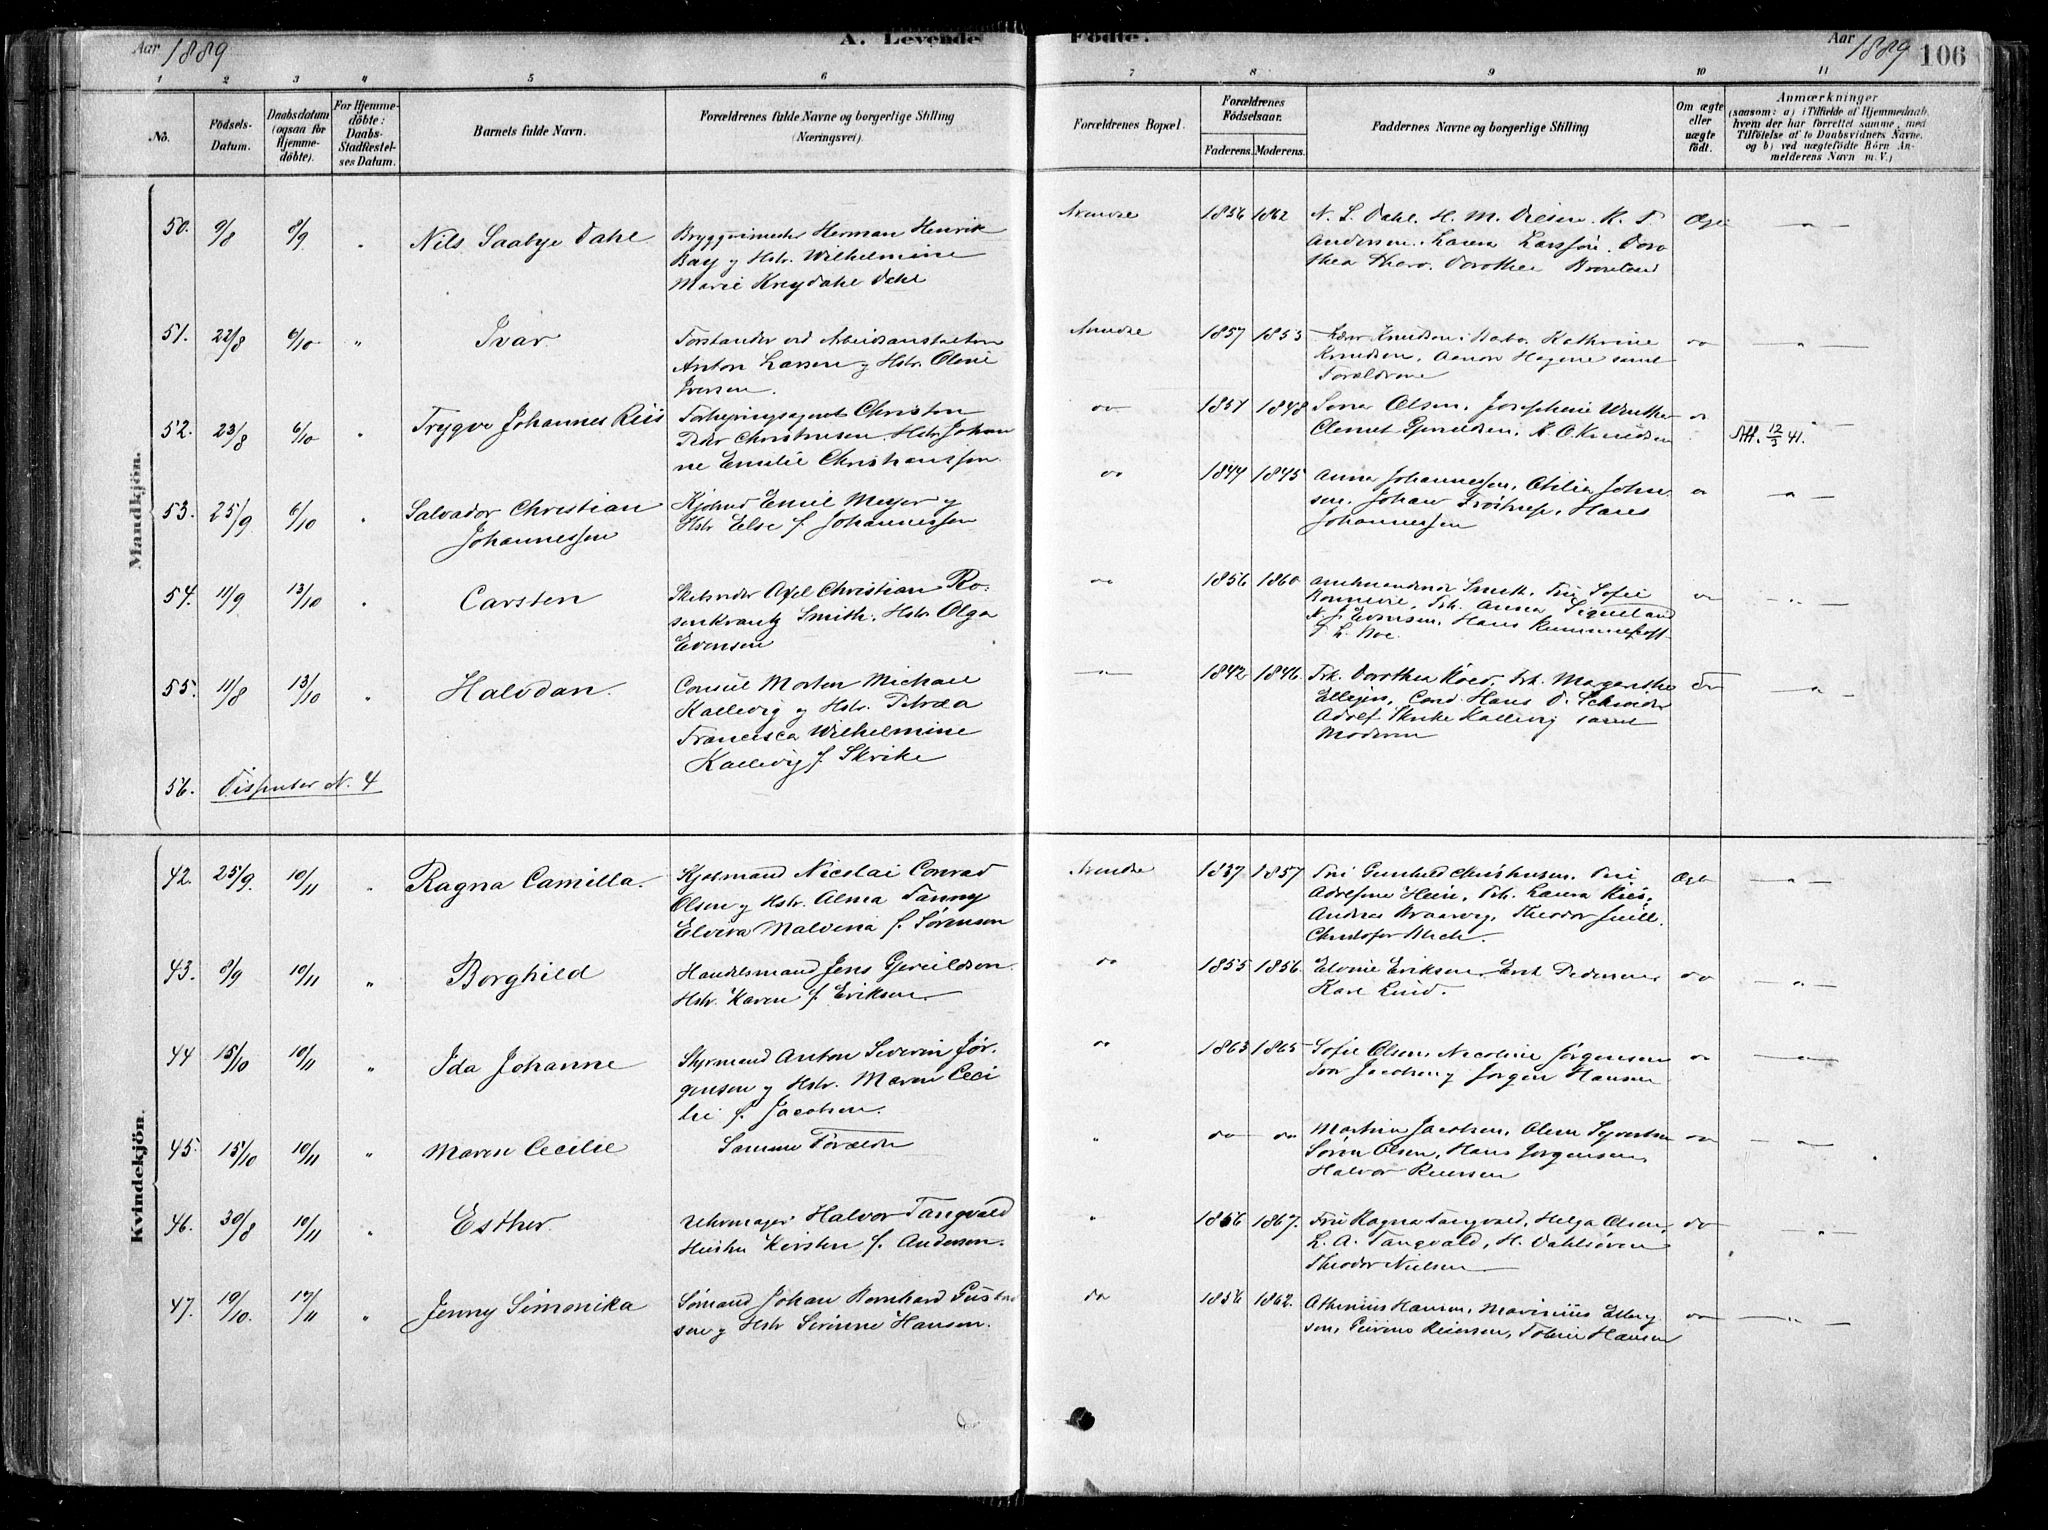 Aar 1889
A. Levende Födte.
Aar 1889 106
1 2 3 4 5 6 7 8 9 10 11
No.
Födsels-Datum.
Daabsdatum (ogsaa for Hjemmedöbte).
For Hjemmedöbte: Daabs-Stadfæstelses Datum.
Barnets fulde Navn.
Forældrenes fulde Navne og borgerlige Stilling
(Næringsvei).
Forældrenes Bopæl.
Forældrenes Födselsaar.
Faderens. Moderens.
Faddernes Navne og borgerlige Stilling
Om ægte eller uægte födt.
Anmærkninger
(saasom: a) i Tilfælde af Hjemmedaab,
hvem der har forrettet samme, med
Tilföielse af to Daabsvidners Navne,
og b) ved uægtefödte Börn An-
melderens Navn m. V.)
Mandkjön.
50. 9/8 8/9 " Nils Saabye Dahl
Bryggerimester Herman Henrik
Bay og Hstr. Wilhelmine
Marie Dahl
Arendal 1856 1862
N. S. Dahl. H. M. K. T.
Andersen. Larsson. Doro
thea Dorothea
Ægte
51. 22/8 6/10 " Ivar
Forstander ved Arbeidsanstalten
Anton Larsen og Hstr. Oline
Iversen.
Arendal 1857 1853
Knudsen. Kathrine
Knudsen, Hagene samt
Forældrene
do
52. 23/8 6/10 " Trygve Johannes Riis
Christen
Peder Christensen Hstr. Johan
ne Emilie Christianssen.
do 1851 1848
Olsen, Josephine Winther
K. O. Knudsen
Aff. 12/3 41.
53. 25/9 6/10 " Salvador Christian
Johannessen
Kjolmd Emil Meyer og
Hstr Else f. Johannessen
do 1844 1845
Anna Johannessen, Otilia John
sen, Johan Trostrup, Hans
Johannessen
54. 11/9 13/10 " Carsten
Axel Christian Ro-
senkrantz Smith. Hstr. Olga
Evensen
do 1856 1860
Smith, Fru Sofie
Bonnevie, Frk. Anna Siqueland
N. J. Evensen, Hans Rummelhoff
55. 11/8 13/10 " Halvdan.
Consul Morten Michael
Kallevig og Hstr. Petræa
Francisca Wilhelmine
Kallevig f. Skrike
1842 1846
Frk. Dorothea Köed, Frk. Magarethe
Ellefsen, Cand. Hans O. Schneider
Adolf Skrike Kallevig samt
Moderen
56. Dissenter N. 4
Kvindekjön.
42. 25/9. 10/11 " Ragna Camilla.
Kjolmand Nicolai Conrad
Olsen og Hstr. Alma Fanny
Elvira Malvina f. Sörensen
Arendal 1837 1857
Fru Gunhild Christensen. Fru
Adolfine Hein, Frk. Laura Riis,
Andreas Braarvig, Theodor
Christofer
Ægte
43. 8/9 10/11 " Borghild
Handelsmand Jens Gjeruldsen.
Hstr. Karen f. Eriksen
do 1855 1856.
Eline Eriksen, Pedersen
Karl Lund.
do
44 15/10 10/11 " Ida Johanne
Styrmand Anton Severin Jör-
gensen og Hstr. Maren Ceci
lie f. Jacobsen.
do 1863 1865
Sofie Olsen, Nicoline Jörgensen
Ivar Jacobsen og Jörgen Hansen
45. 15/10 10/11 " Maren Cecilie
Samme Forældre
" do do
Martin Jacobsen, Syvertsen
Sören Olsen, Hans Jörgensen,
Halvor Reiersen
do
46. 30/8 10/11 " Esther.
Uhrmager Halvor Tangvald
Hustru Kirsten f. Andersen.
" 1856 1867.
Fru Ragna Tangvald, Helga Olsen,
L. A. Tangvald, H. Dahlsören
Theodor Nielsen
do
47. 19/10. 17/11 " Jenny Simonika
Sömand Johan Bernhard Gustav
sen og Hstr Serinne Hansen.
do 1856 1862.
Athenius Hansen, Marinius Elling
sen, Reiersen, Tobine Hansen
do